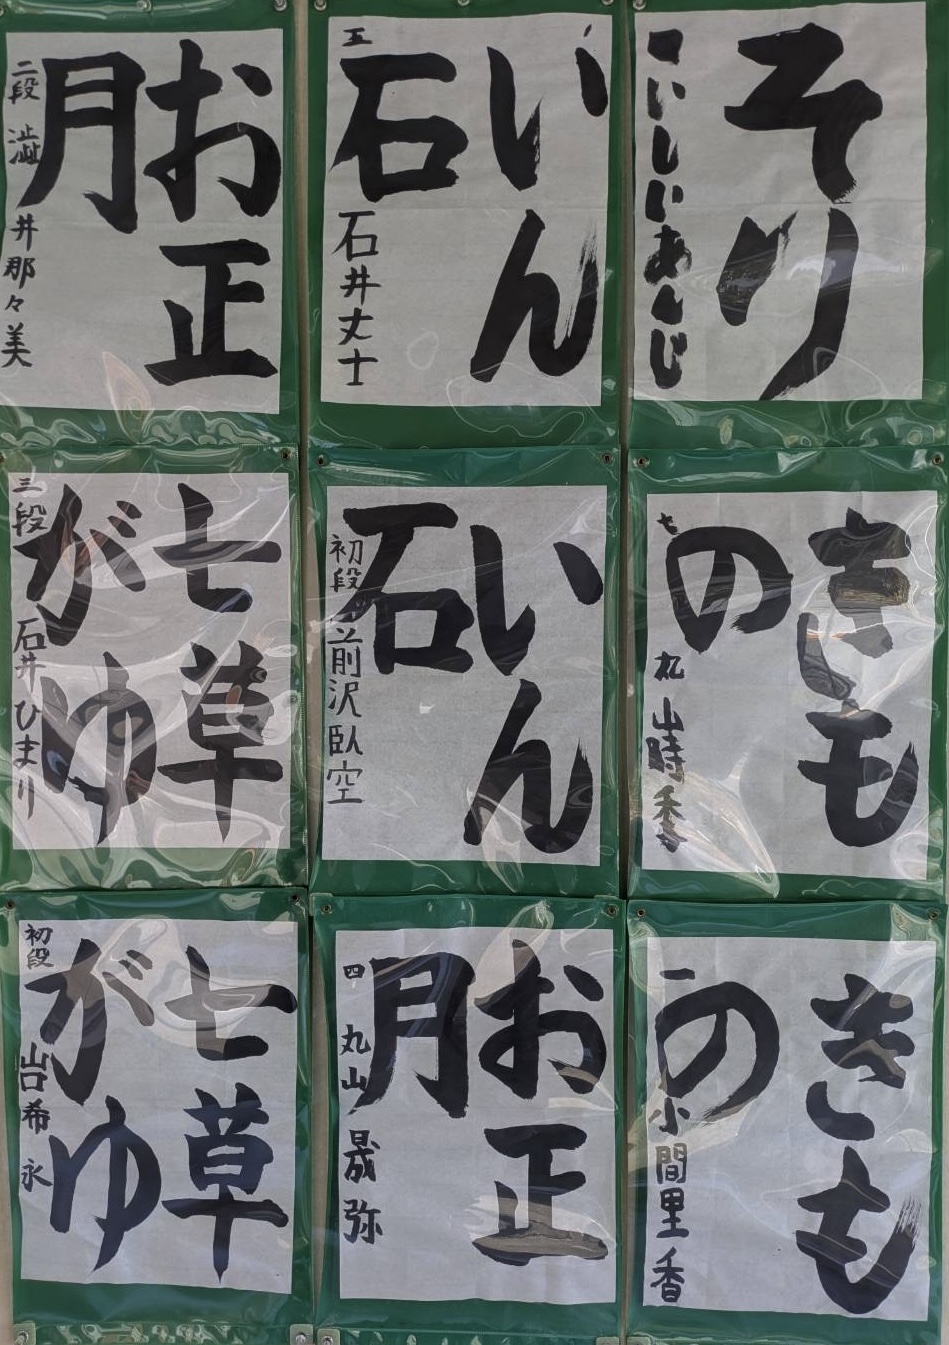 そり
こいしいあんじ
いん
石
五
石井丈士
お正
月
二段 澁井那々美
きも
の
七 丸山時季
いん
石
初段 前沢臥空
七草
がゆ
三段 石井ひまり
きも
の
一 小間里香
お正
月
四 丸山晟弥
七草
がゆ
初段 山口希永